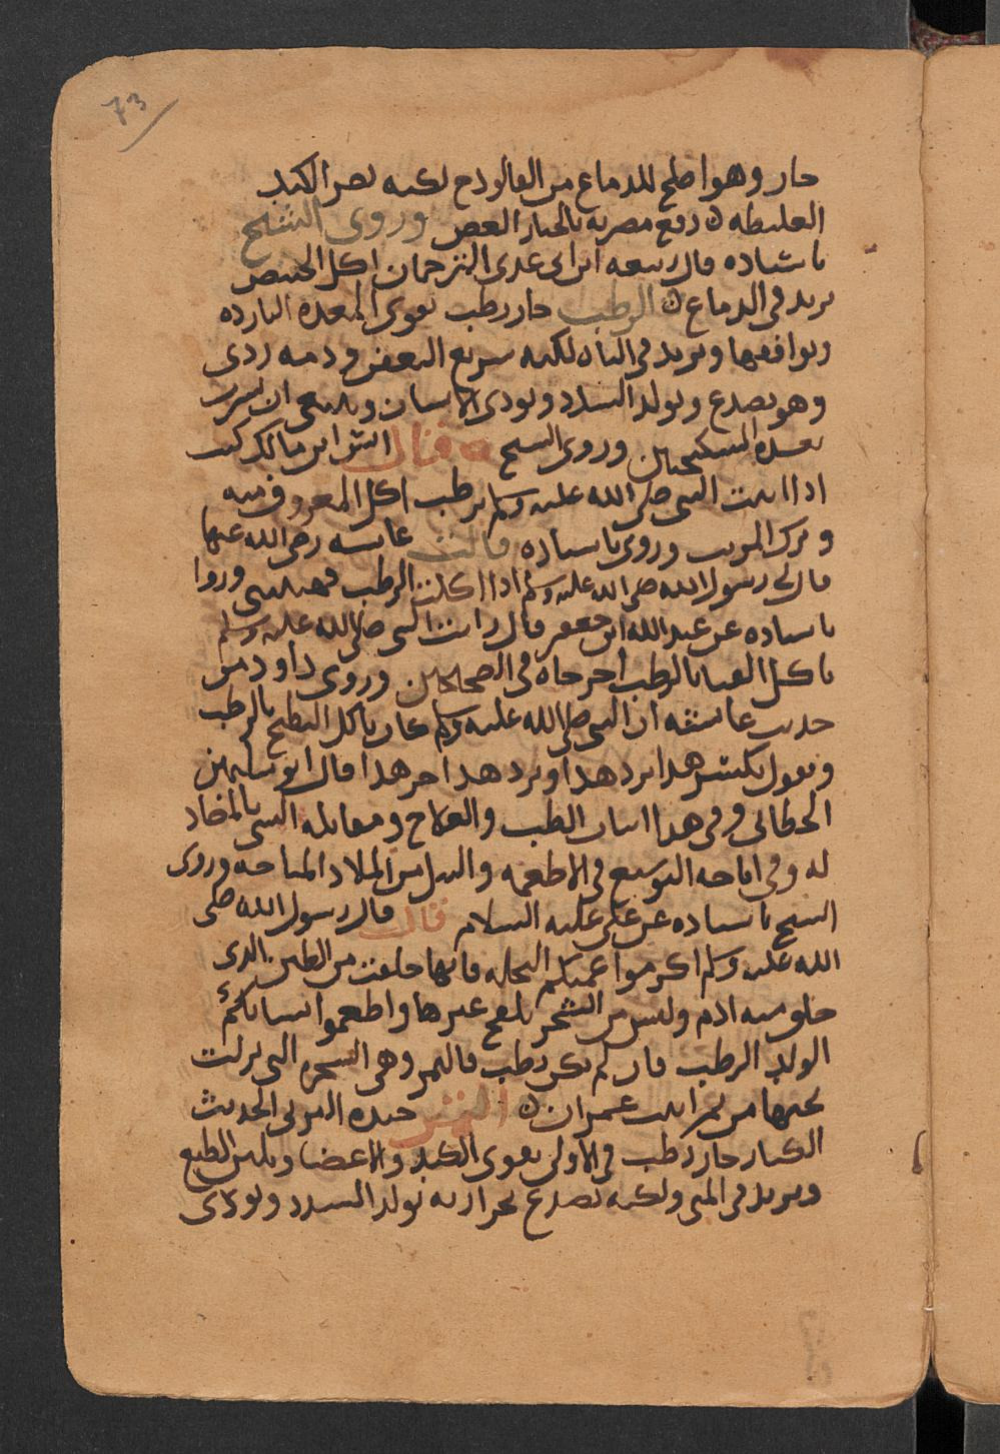 73
حار وهو اصلح للدماغ من الفالوذج لكنه يضر الكبد
الغليظه ٥ دفع مضرته بالخيار الغض وروى الشيخ
باسناده قال ربيعه ابن ابى عدى الترجمان اكل الخبيص
يزيد فى الدماغ ٥ الرطب حار رطب يقوى المعدة البارده
ويوافقها ويزيد فى الباه لكنه سريع التعفن ودمه ردى
وهو يصدع ويولد السدد ويوذى الاسنان وينبغى ان يشرب
بعده السكنجبين وروى الشيخ ٥ قال انس ابن مالك كنت
اذا اتيت النبى صلى الله عليه وسلم برطب اكل المعروف منه
وترك المريب وروى باسناده قالت عايشه رضى الله عنها
قال لى رسول الله صلى الله عليه وسلم اذا اكلت الرطب فهنينى وروا
باسناده عن عبد الله ابن جعفر قال رايت النبى صلى الله عليه وسلم
ياكل القثا بالرطب اخرجاه فى الصحيحين وروى داود من
حديث عائشه ان النبى صلى الله عليه وسلم كان ياكل البطيخ بالرطب
ويقول يكسر هذا برد هذا وبرد هذا حر هذا قال ابو سليمن
الخطابى وفى هذا اثبات الطب والعلاج ومقابله الشى بالمضاد
له وفى اباحه التوسع فى الاطعمه والنيل من الملاذ المباحه وروى
الشيخ باسناده عن على عليه السلام قال قال رسول الله صلى
الله عليه وسلم اكرموا عمتكم النخله فانها خلقت من الطين الذى
خلق منه ادم وليس من الشجر يلقح غيرها واطعموا نساءكم
الولد الرطب فان لم يكن رطب فالتمر وهى الشجره التى نزلت
تحتها مريم ابنت عمران ٥ التمر جيده البرنى الحديث
الكبار حار رطب فى الاولى يقوى الكبد والاعضا ويلين الطبع
ويزيد فى المنى ولكنه يصدع لحرارته يولد السدد ويوذى